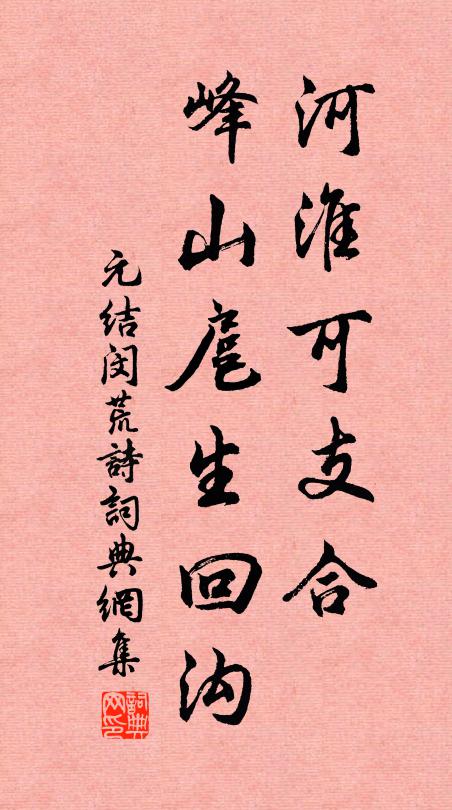 河淮可支合
峰山扈生回沟
元结闵荒詩詞典網集
詞典网印